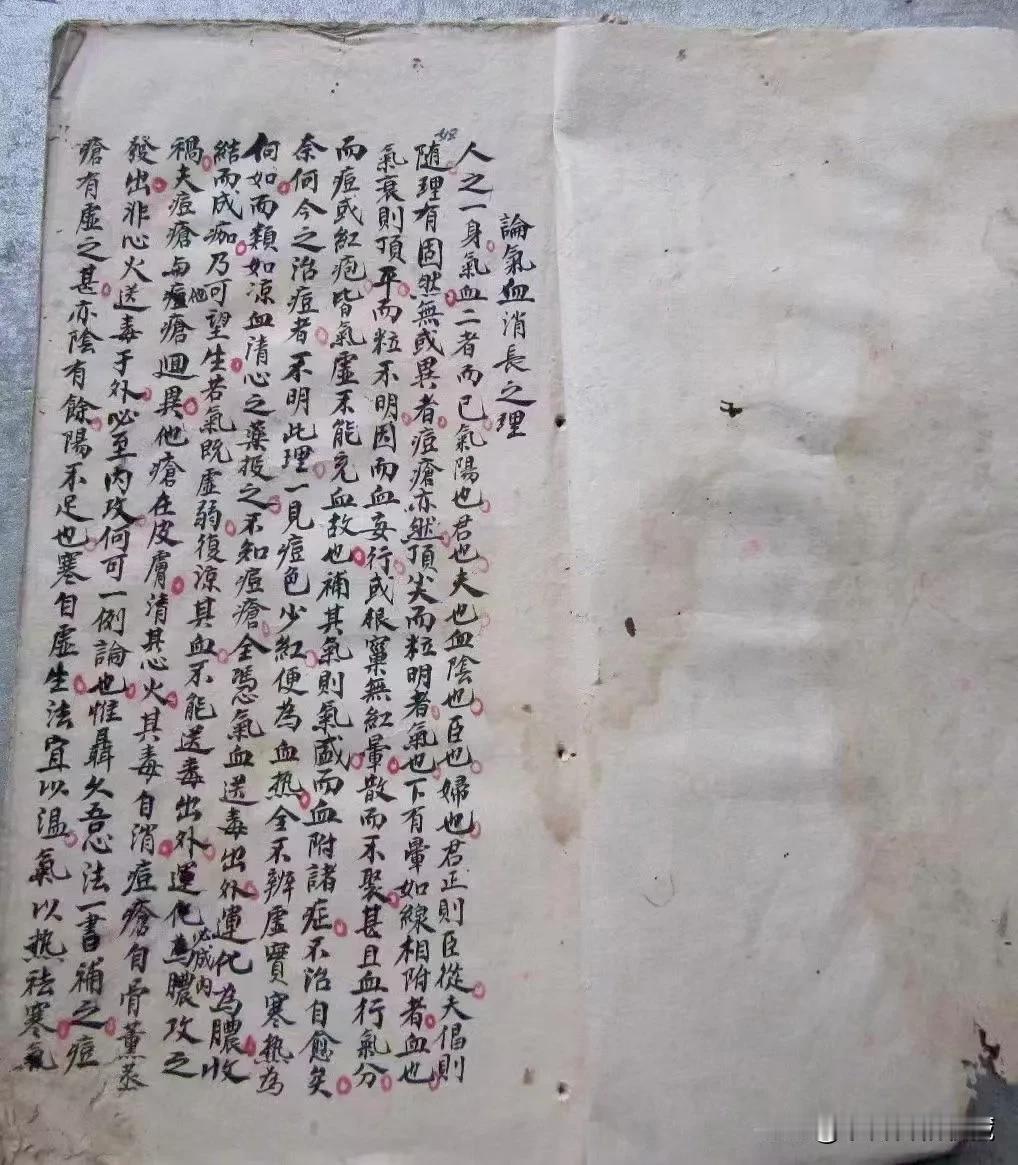 論氣血消長之理
人之一身氣血二者而已氣陽也君也夫也血陰也臣也婦也君正則臣從夫倡則
婦随理有固然無或異者痘瘡亦然頂尖而粒明者氣也下有暈如線相附者血也
氣衰則頂平而粒不明因而血妄行或根窠無紅暈散而不聚甚且血行氣分
而痘或紅疱皆氣虛不能充血故也補其氣則氣盛而血附諸症不治自愈矣
奈何今之治痘者不明此理一見痘色少紅便為血热全不辨虛實寒热為
何如而類如凉血清心之藥投之不知痘瘡全慿氣血送毒出外運化為膿收
結而成痂乃可望生若氣既虛弱復凉其血不能送毒出外運化為膿必成内攻之
禍夫痘瘡与他瘡迴異他瘡在皮膚清其心火其毒自消痘瘡自骨薰蒸
發出非心火送毒于外必至内攻何可一例論也惟聶久吾心法一書補之痘
瘡有虛之甚亦陰有餘陽不足也寒自虛生法宜以温氣以热祛寒氣